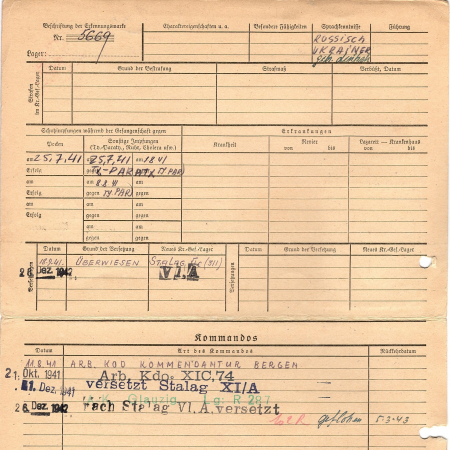 Beschriftung der Erkennungsmarke
Nr. 5669
Lager:
Charaktereigenschaften u. a.
Besondere Fähigkeiten
Sprachkenntnisse
Führung
RUSSISCH
UKRAINER
Strafen im Kr.-Gef.-Lager
Datum
Grund der Bestrafung
Strafmaß
Verbüßt, Datum
Schutzimpfungen während der Gefangenschaft gegen
Erkrankungen
Pocken
Sonstige Impfungen
(Ty.-Paraty., Ruhr, Cholera usw.)
Krankheit
Revier
von bis
Lazarett – Krankenhaus
von bis
am 25.7.41
am 25.7.41
am 1.8.41
Erfolg
gegen TY-PARATY
gegen TY PAR
am
am 8.8.41
am
Erfolg
gegen TY PAR
gegen
am
am
am
Erfolg
gegen
gegen
am
am
am
gegen
gegen
Versetzungen
Datum
Grund der Versetzung
Neues Kr.-Gef.-Lager
Datum
Grund der Versetzung
Neues Kr.-Gef.-Lager
ÜBERWIESEN
STALAG (311)
26. Dez. 1942
VI.A
Kommandos
Datum
Art des Kommandos
Rückkehrdatum
11.8.41
ARB. KOD KOMMENDANTUR BERGEN
21. Okt. 1941
Arb. Kdo. XIC,74
Dez. 1941
versetzt Stalag XI/A
A.K. Glauzig Lg: R 287
26. Dez. 1942
nach Stalag VI.A versetzt
geflohen 5-3-43